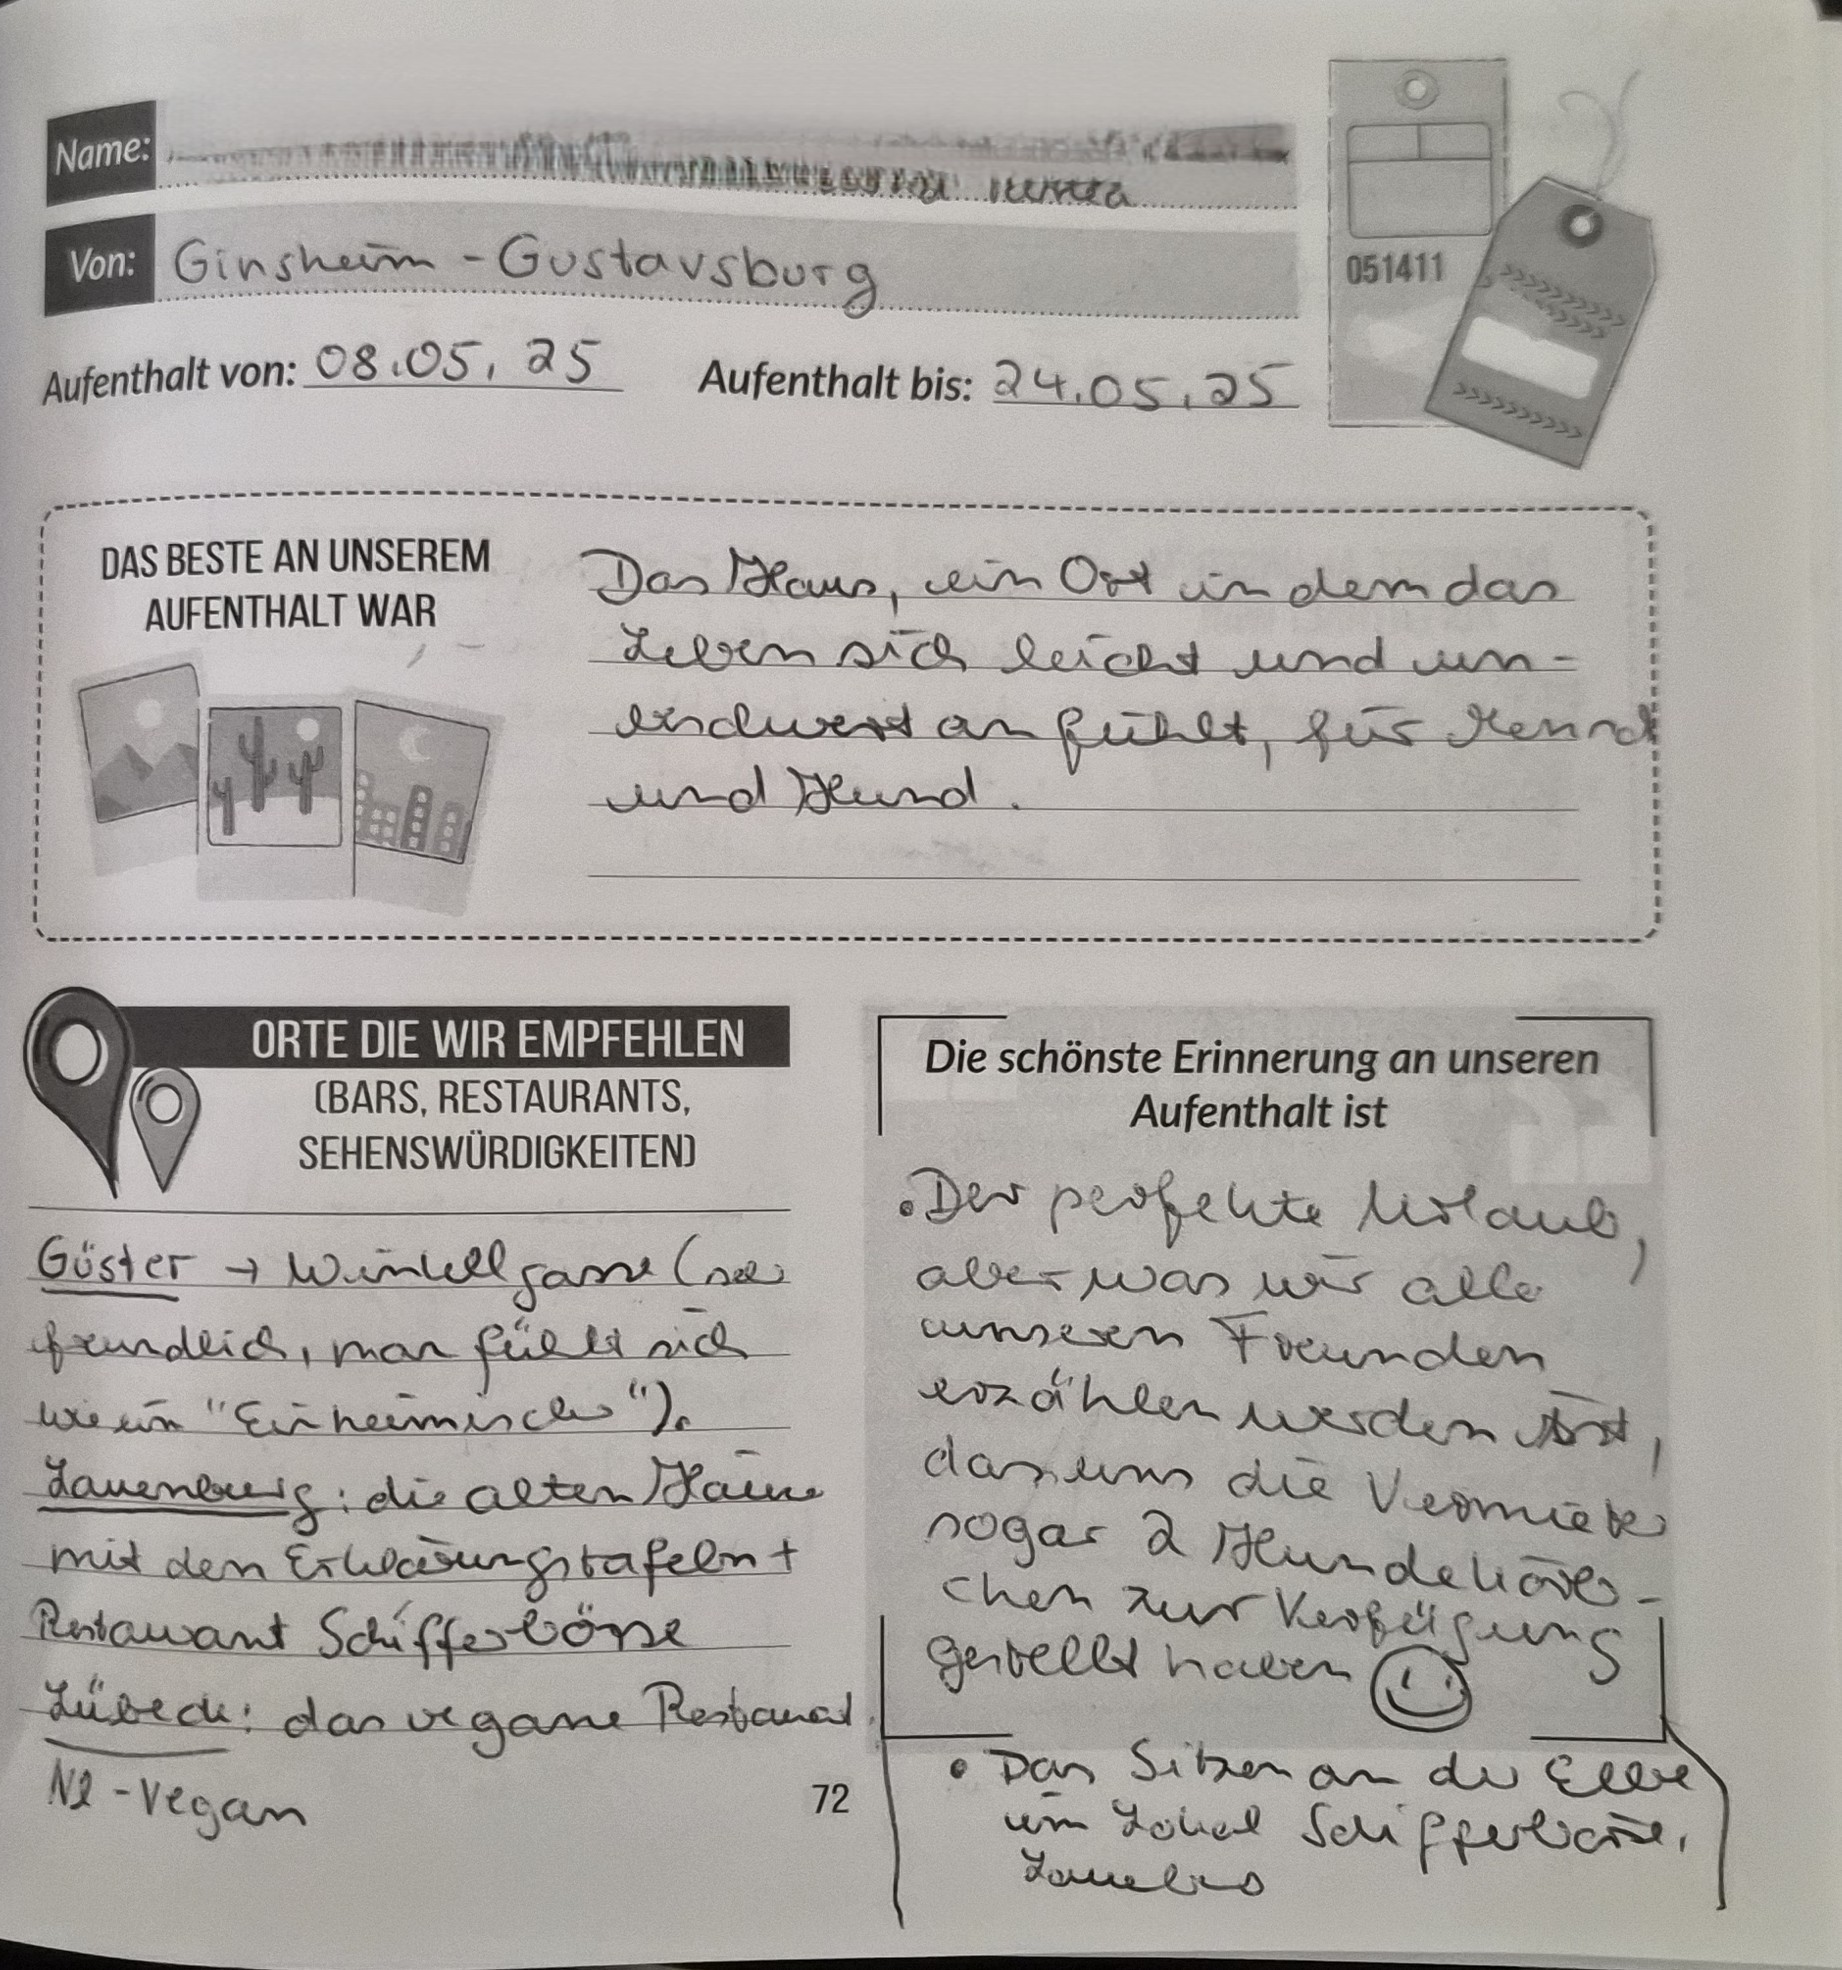 Name:
Von: Ginsheim - Gustavsburg
Aufenthalt von: 08.05.25 Aufenthalt bis: 24.05.25
051411
DAS BESTE AN UNSEREM
AUFENTHALT WAR
Das Haus, ein Ort in dem das
Leben sich leicht und un-
endwert anfühlt, für Mensch
und Hund.
ORTE DIE WIR EMPFEHLEN
(BARS, RESTAURANTS,
SEHENSWÜRDIGKEITEN)
Güster → Winkellgasse (sehr
freundlich, man fühlt sich
wie ein "Einheimischer").
Lauenburg: die alten Häuser
mit den Erklärungstafeln +
Restaurant Schifferbörse
Lübeck: das vegane Restaurant
Nl - Vegan
Die schönste Erinnerung an unseren
Aufenthalt ist
• Der perfekte Urlaub,
aber was wir alle
unseren Freunden
erzählen werden ist,
das uns die Vermieter
sogar 2 Hundekörb-
chen zur Verfügung
gestellt haben
• Das Sitzen an der Elbe
im Lokal Schifferbörse,
72